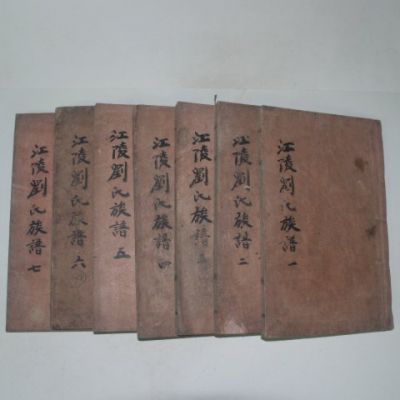 江陵劉氏族譜 一
江陵劉氏族譜 二
江陵劉氏族譜 三
江陵劉氏族譜 四
江陵劉氏族譜 五
江陵劉氏族譜 六
江陵劉氏族譜 七